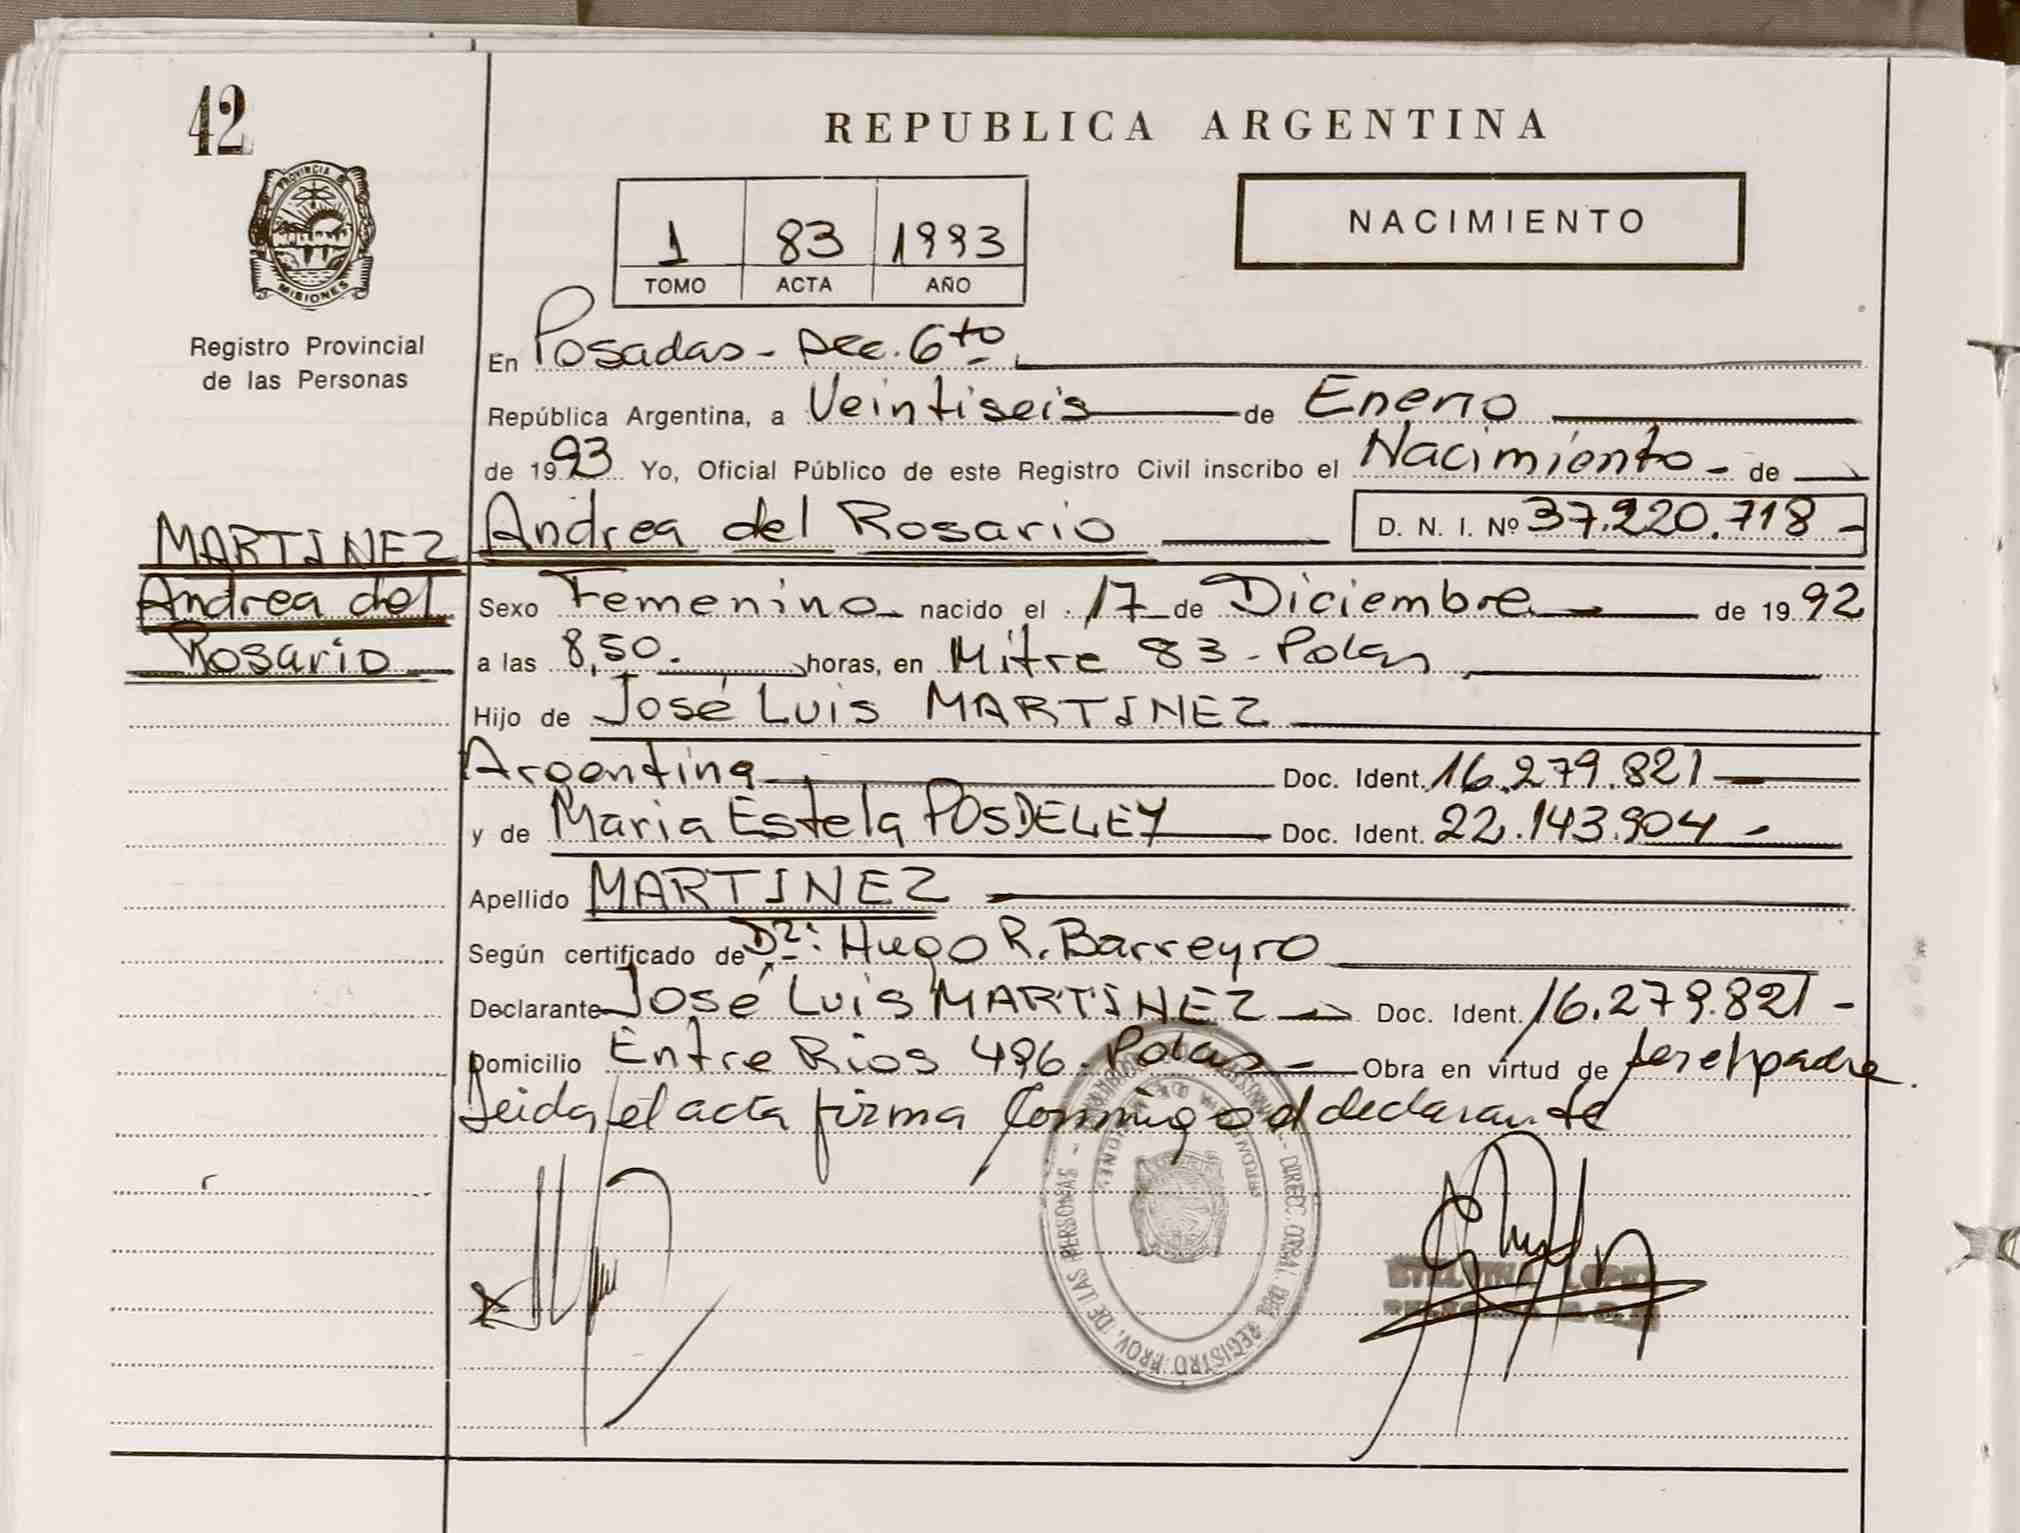 42
REPUBLICA ARGENTINA
NACIMIENTO
1 83 1993
TOMO ACTA AÑO
PROVINCIA D MISIONES
Registro Provincial
de las Personas
En Posadas - Sec. 6to
República Argentina, a Veintiseis de Enero
de 1993 Yo, Oficial Público de este Registro Civil inscribo el Nacimiento - de
MARTINEZ Andrea del Rosario D. N. I. Nº 37.220.718 -
Andrea del Sexo Femenino nacido el 17 de Diciembre de 1992
Rosario a las 8,50. horas, en Mitre 83 - Pdas
Hijo de José Luis MARTINEZ
Argentina Doc. Ident. 16.279.821
y de Maria Estela POSDELEY Doc. Ident. 22.143.904 -
Apellido MARTINEZ
Según certificado de Dr: Hugo R. Barreyro
Declarante José Luis MARTINEZ Doc. Ident. 16.279.821 -
Domicilio Entre Rios 496 - Pdas - Obra en virtud de ser el padre.
Leida el acta firma conmigo el declarante
REGISTRO PROV. DE LAS PERSONAS
LOPEZ